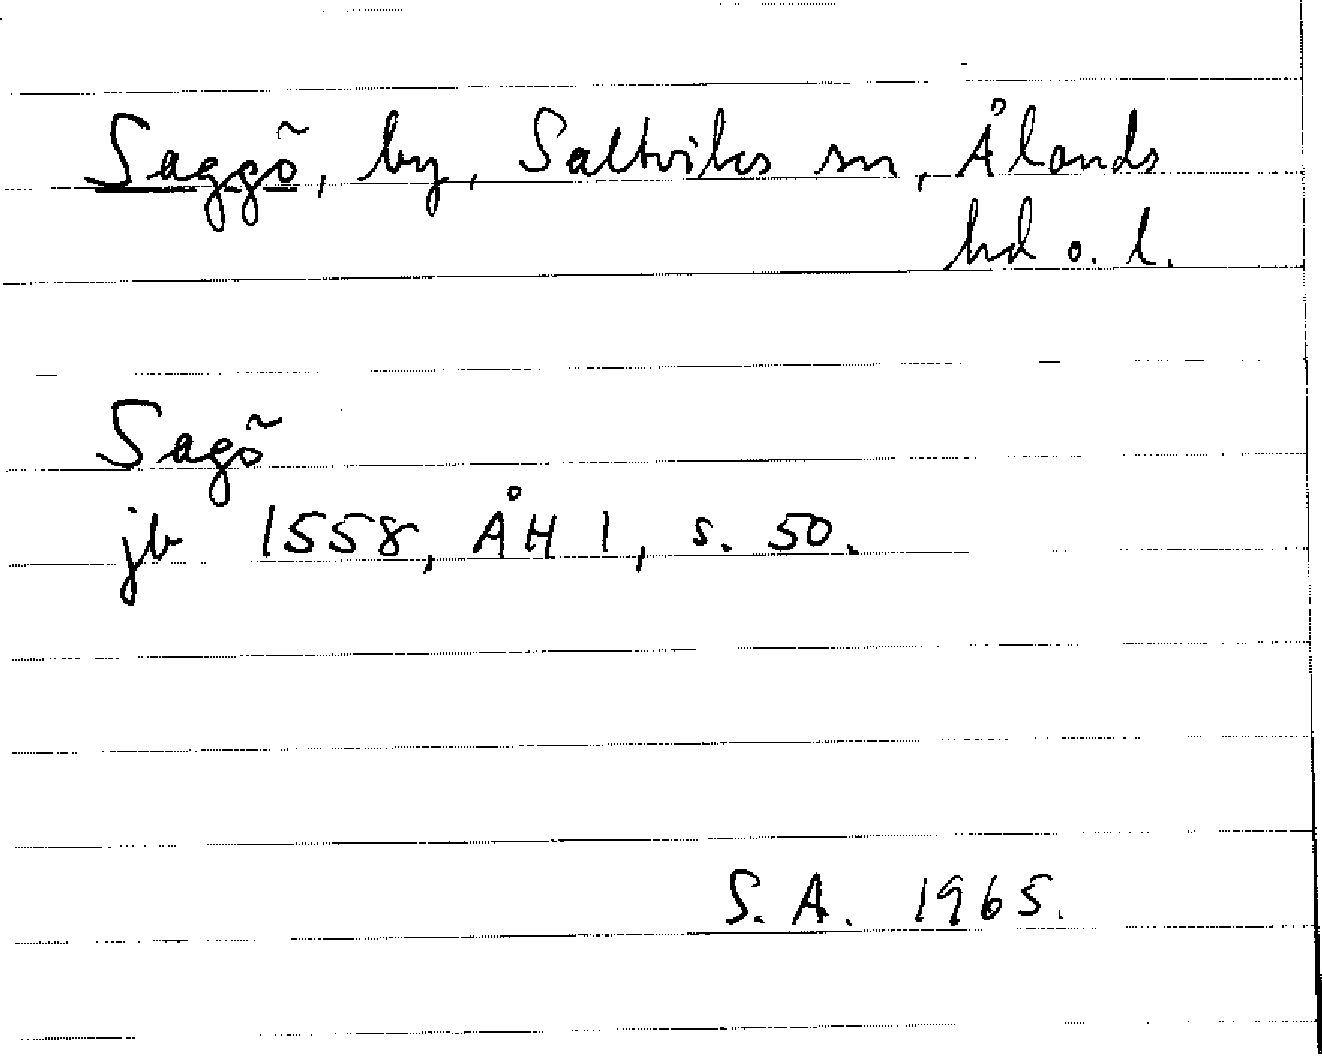 Saggö, by, Saltviks sn, Ålands
hd o. l.
Sagö
jb 1558, ÅH 1, s. 50.
S. A. 1965.